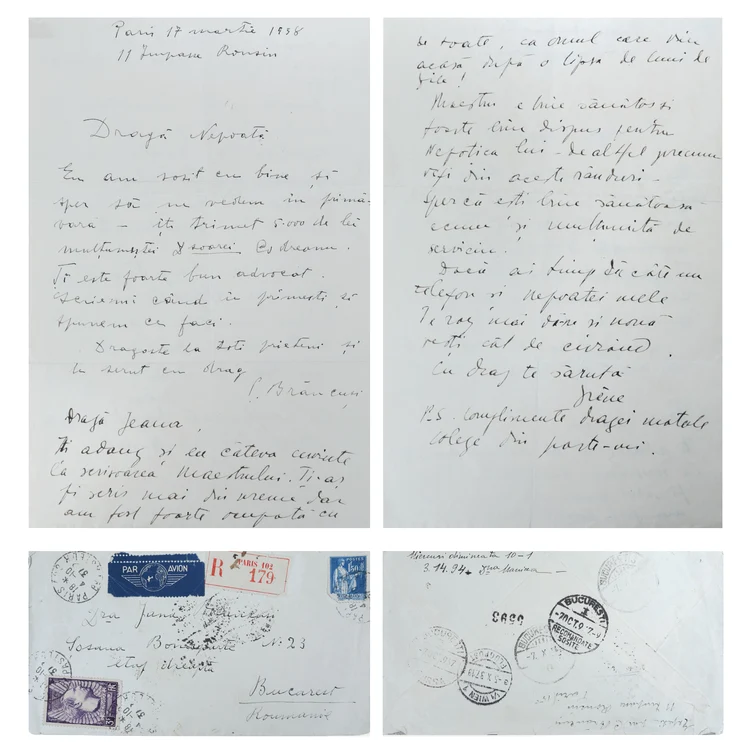 Paris 17 martie 1938
11 Impasse Ronsin
Dragă Nepoată
Eu am sosit cu bine și
sper să ne vedem în primă-
vară – îți trimet 5.000 de lei
mulțumește D soarei Codreanu.
Ți este foarte bun advocat.
Scriemi când îi primești să
spunem ce faci.
Dragoste la toți prieteni și
te serut cu drag
C. Brâncuși
Dragă Jeana,
Îți adaug și eu câteva cuvinte
la scrisoarea Maestrului. Ți-aș
fi scris mai din vreme dar
am fost foarte ocupată cu
de toate, ca omul care vin
acasă după o lipsă de luni de
zile!
Maestrul e bine sănătos și
foarte bine dispus pentru
Nepotica lui – dealtfel precum
vezi din aceste rânduri –
Sper că ești bine sănătoasă
acum și mulțumită de
serviciu!
Dacă ai timp dă câte un
telefon și nepoatei mele
Te rog mai dăne și nouă
vești cât de curând.
Cu drag te sărută
Irène
P.S. Complimente dragei matale
colege din parte-mi.
PAR AVION
R PARIS 102
179
POSTES
1F50
PARIS
Dra Jana
N. 23
etaj
Bucarest
Roumanie
10-1
3.14.94
5693
BUCUREȘTI
-7 OCT. 9
RECOMANDATE
SOSITE
BUCUREȘTI
WIEN
FLUGPOST